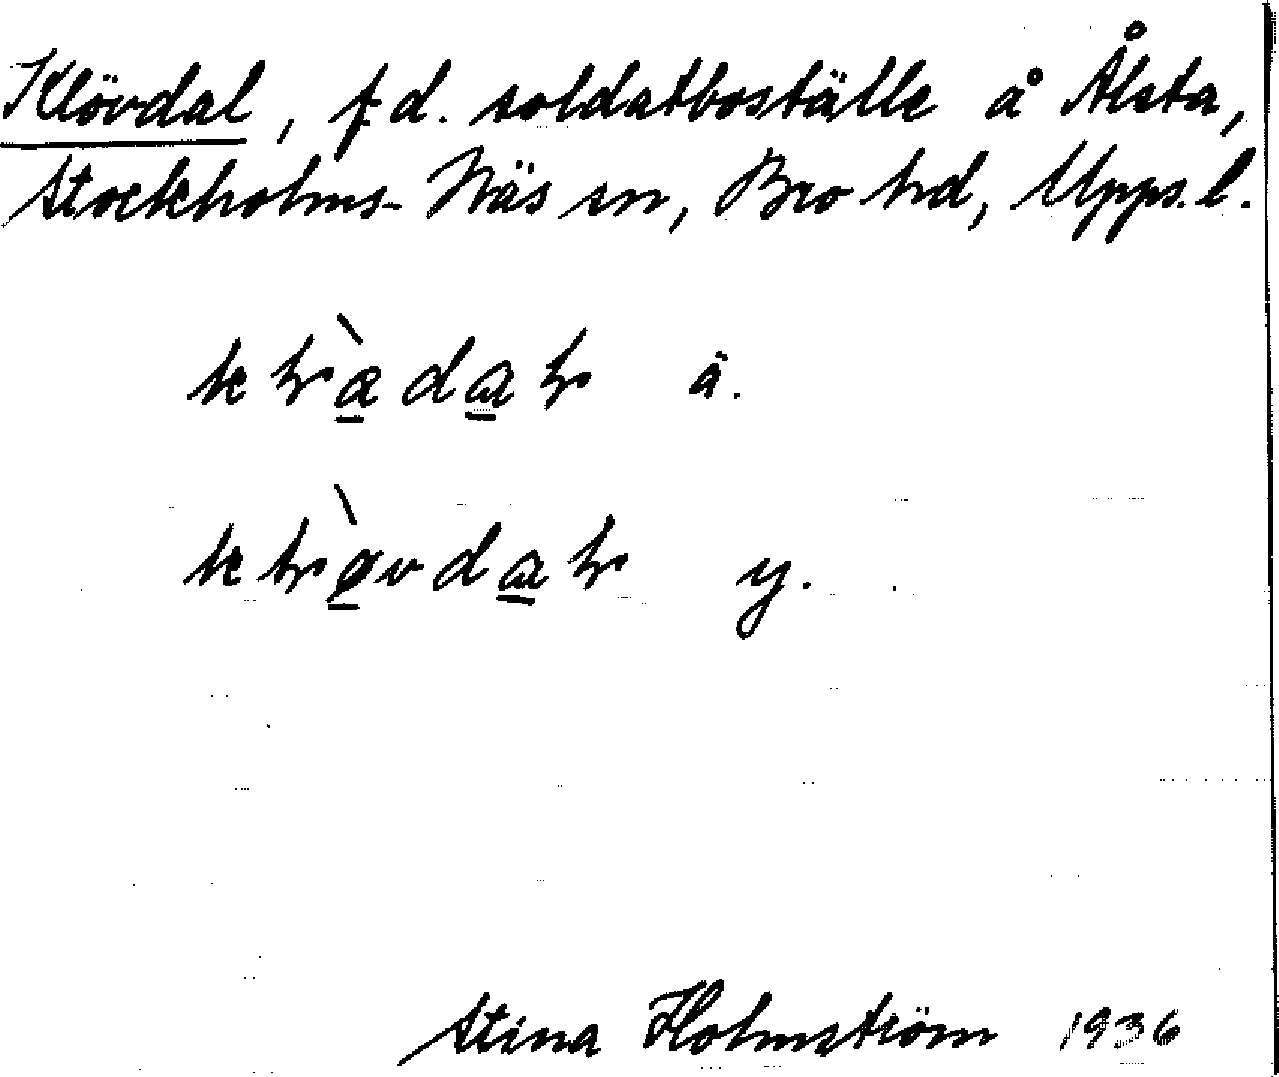 Klövdal, f.d. soldatboställe å Ålsta,
Stockholms-Näs sn, Bro hd, Upps.l.
klæ̱̀da̱l ä.
klø̱̀vda̱l y.
Stina Holmström 1936